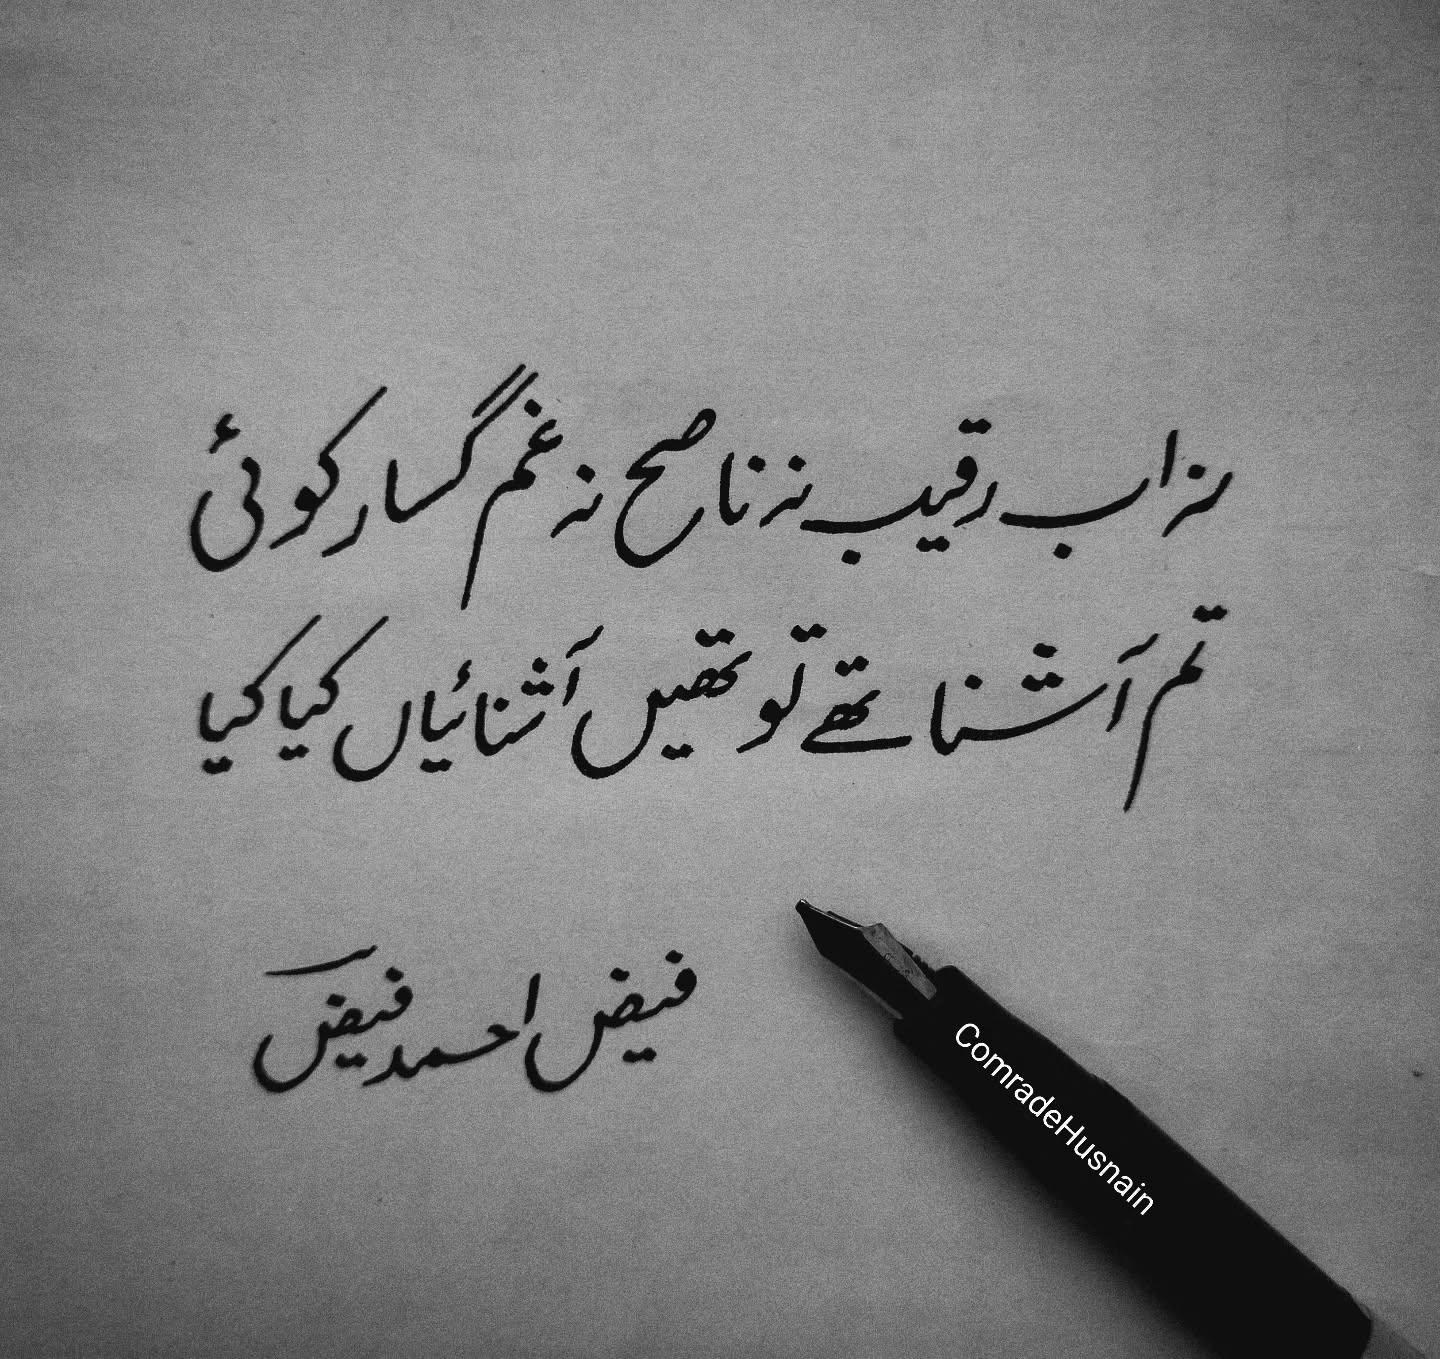 نہ اب رقیب نہ ناصح نہ غم گسار کوئی
تم آشنا تھے تو تھیں آشنائیاں کیا کیا
فیض احمد فیضؔ
ComradeHusnain